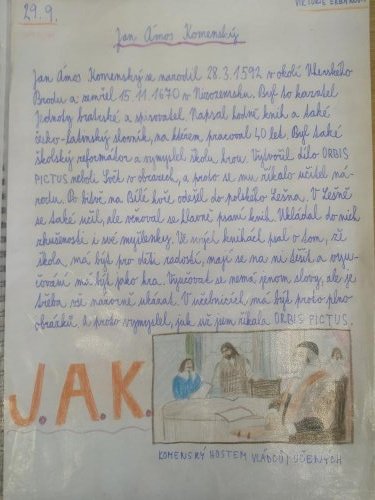 29.9.
Jan Ámos Komenský
Jan Ámos Komenský se narodil 28.3.1592 v okolí Uherského
Brodu a zemřel 15.11.1670 v Nizozemsku. Byl to kazatel
Jednoty bratrské a spisovatel. Napsal hodně knih a také
česko-latinský slovník, na kterém pracoval 40 let. Byl také
školský reformátor a vymyslel školu hrou. Vytvořil dílo ORBIS
PICTUS neboli Svět v obrazech, a proto se mu říkalo učitel ná-
rodů. Po bitvě na Bílé hoře, odešel do polského Lešna. V Lešně
se také učil, ale venoval se hlavně psaní knih. Vkládal do nich
zkušenosti i své myšlenky. Ve svých knihách psal o tom, že
škola, má být pro děti radostí, mají se na ni těšit a vyu-
čování má být jako hra. Vyučovat se nemá jenom slovy, ale je
třeba vše názorně ukázat. V učebnicích, má být proto plno
obrázků. A proto vymyslel, jak už jsem říkala ORBIS PICTUS.
J.A.K.
KOMENSKÝ HOSTEM VLÁDCŮ I UČENÝCH